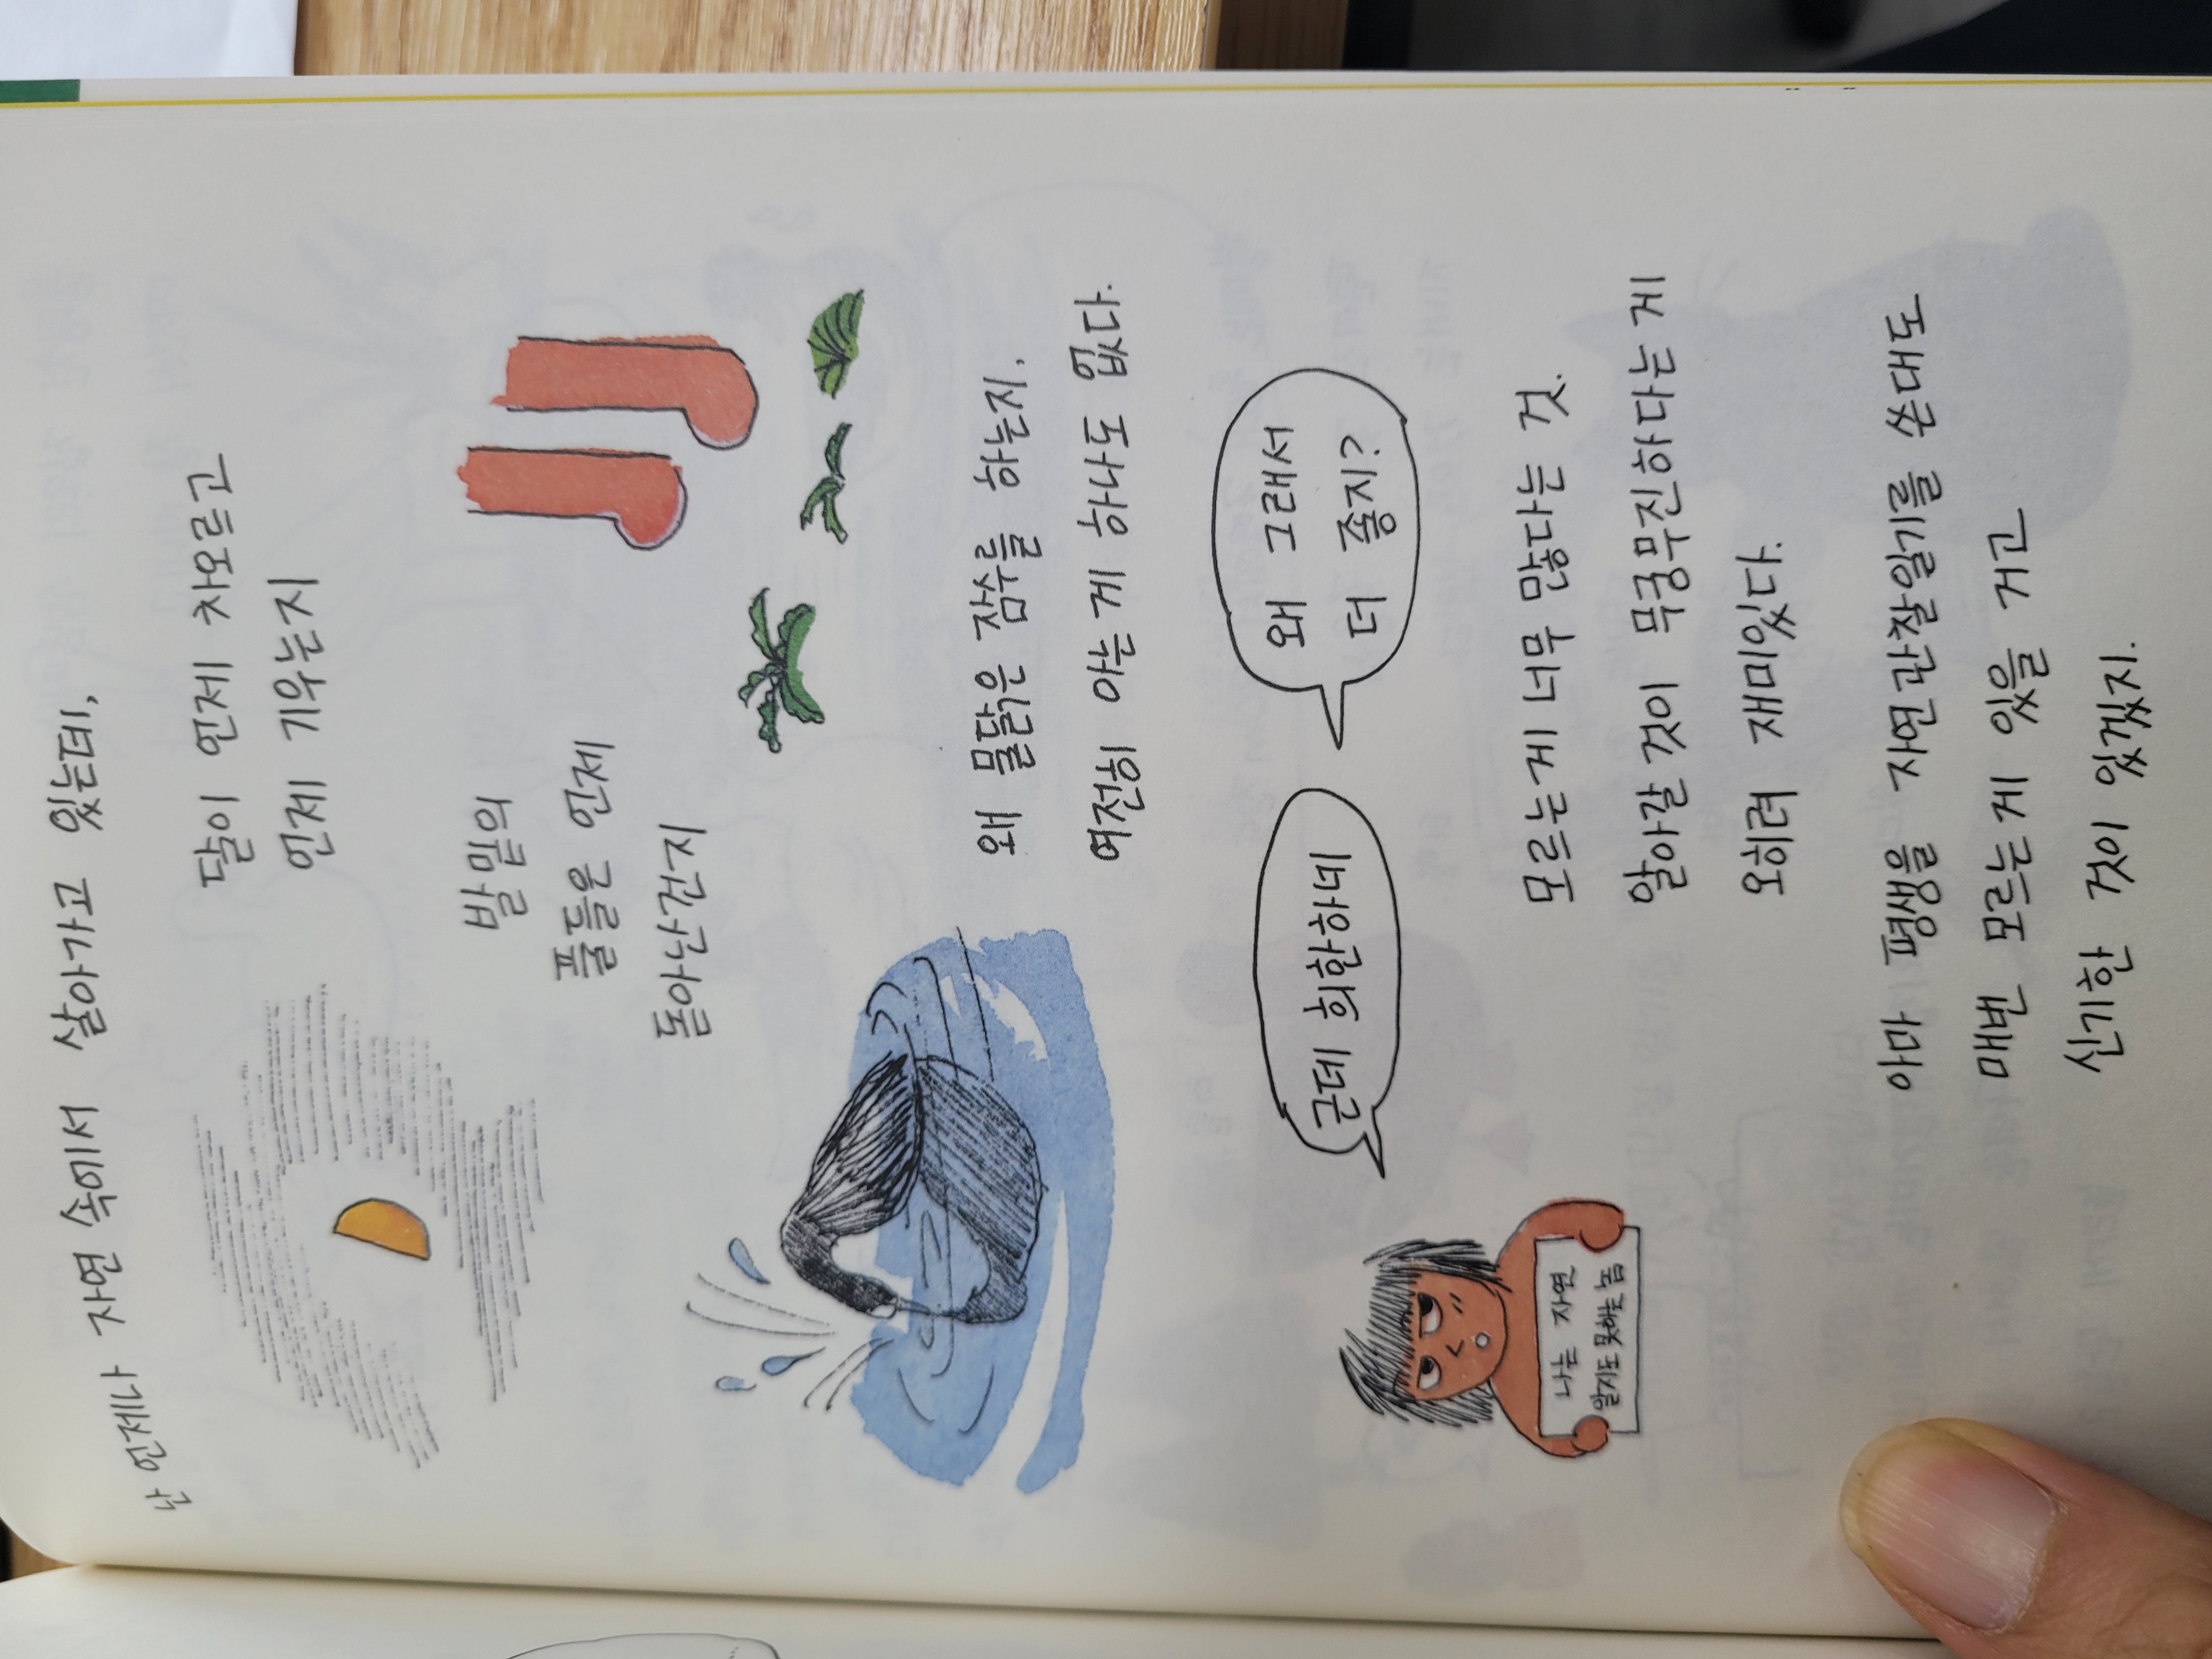 난 언제나 자연 속에서 살아가고 있는데,
달이 언제 차오르고
언제 기우는지
발밑의
풀들은 언제
돋아난건지
왜 물닭은 잠수를 하는지.
여전히 아는 게 하나도 없다.
근데 희한하네
왜 그래서
더 좋지?
나는 자연
알지도 못하는 놈
모르는게 너무 많다는 것.
알아갈 것이 무궁무진하다는 게
오히려 재미있다.
아마 평생을 자연관찰일기를 쓴대도
매번 모르는게 있을 거고
신기한 것이 있겠지.